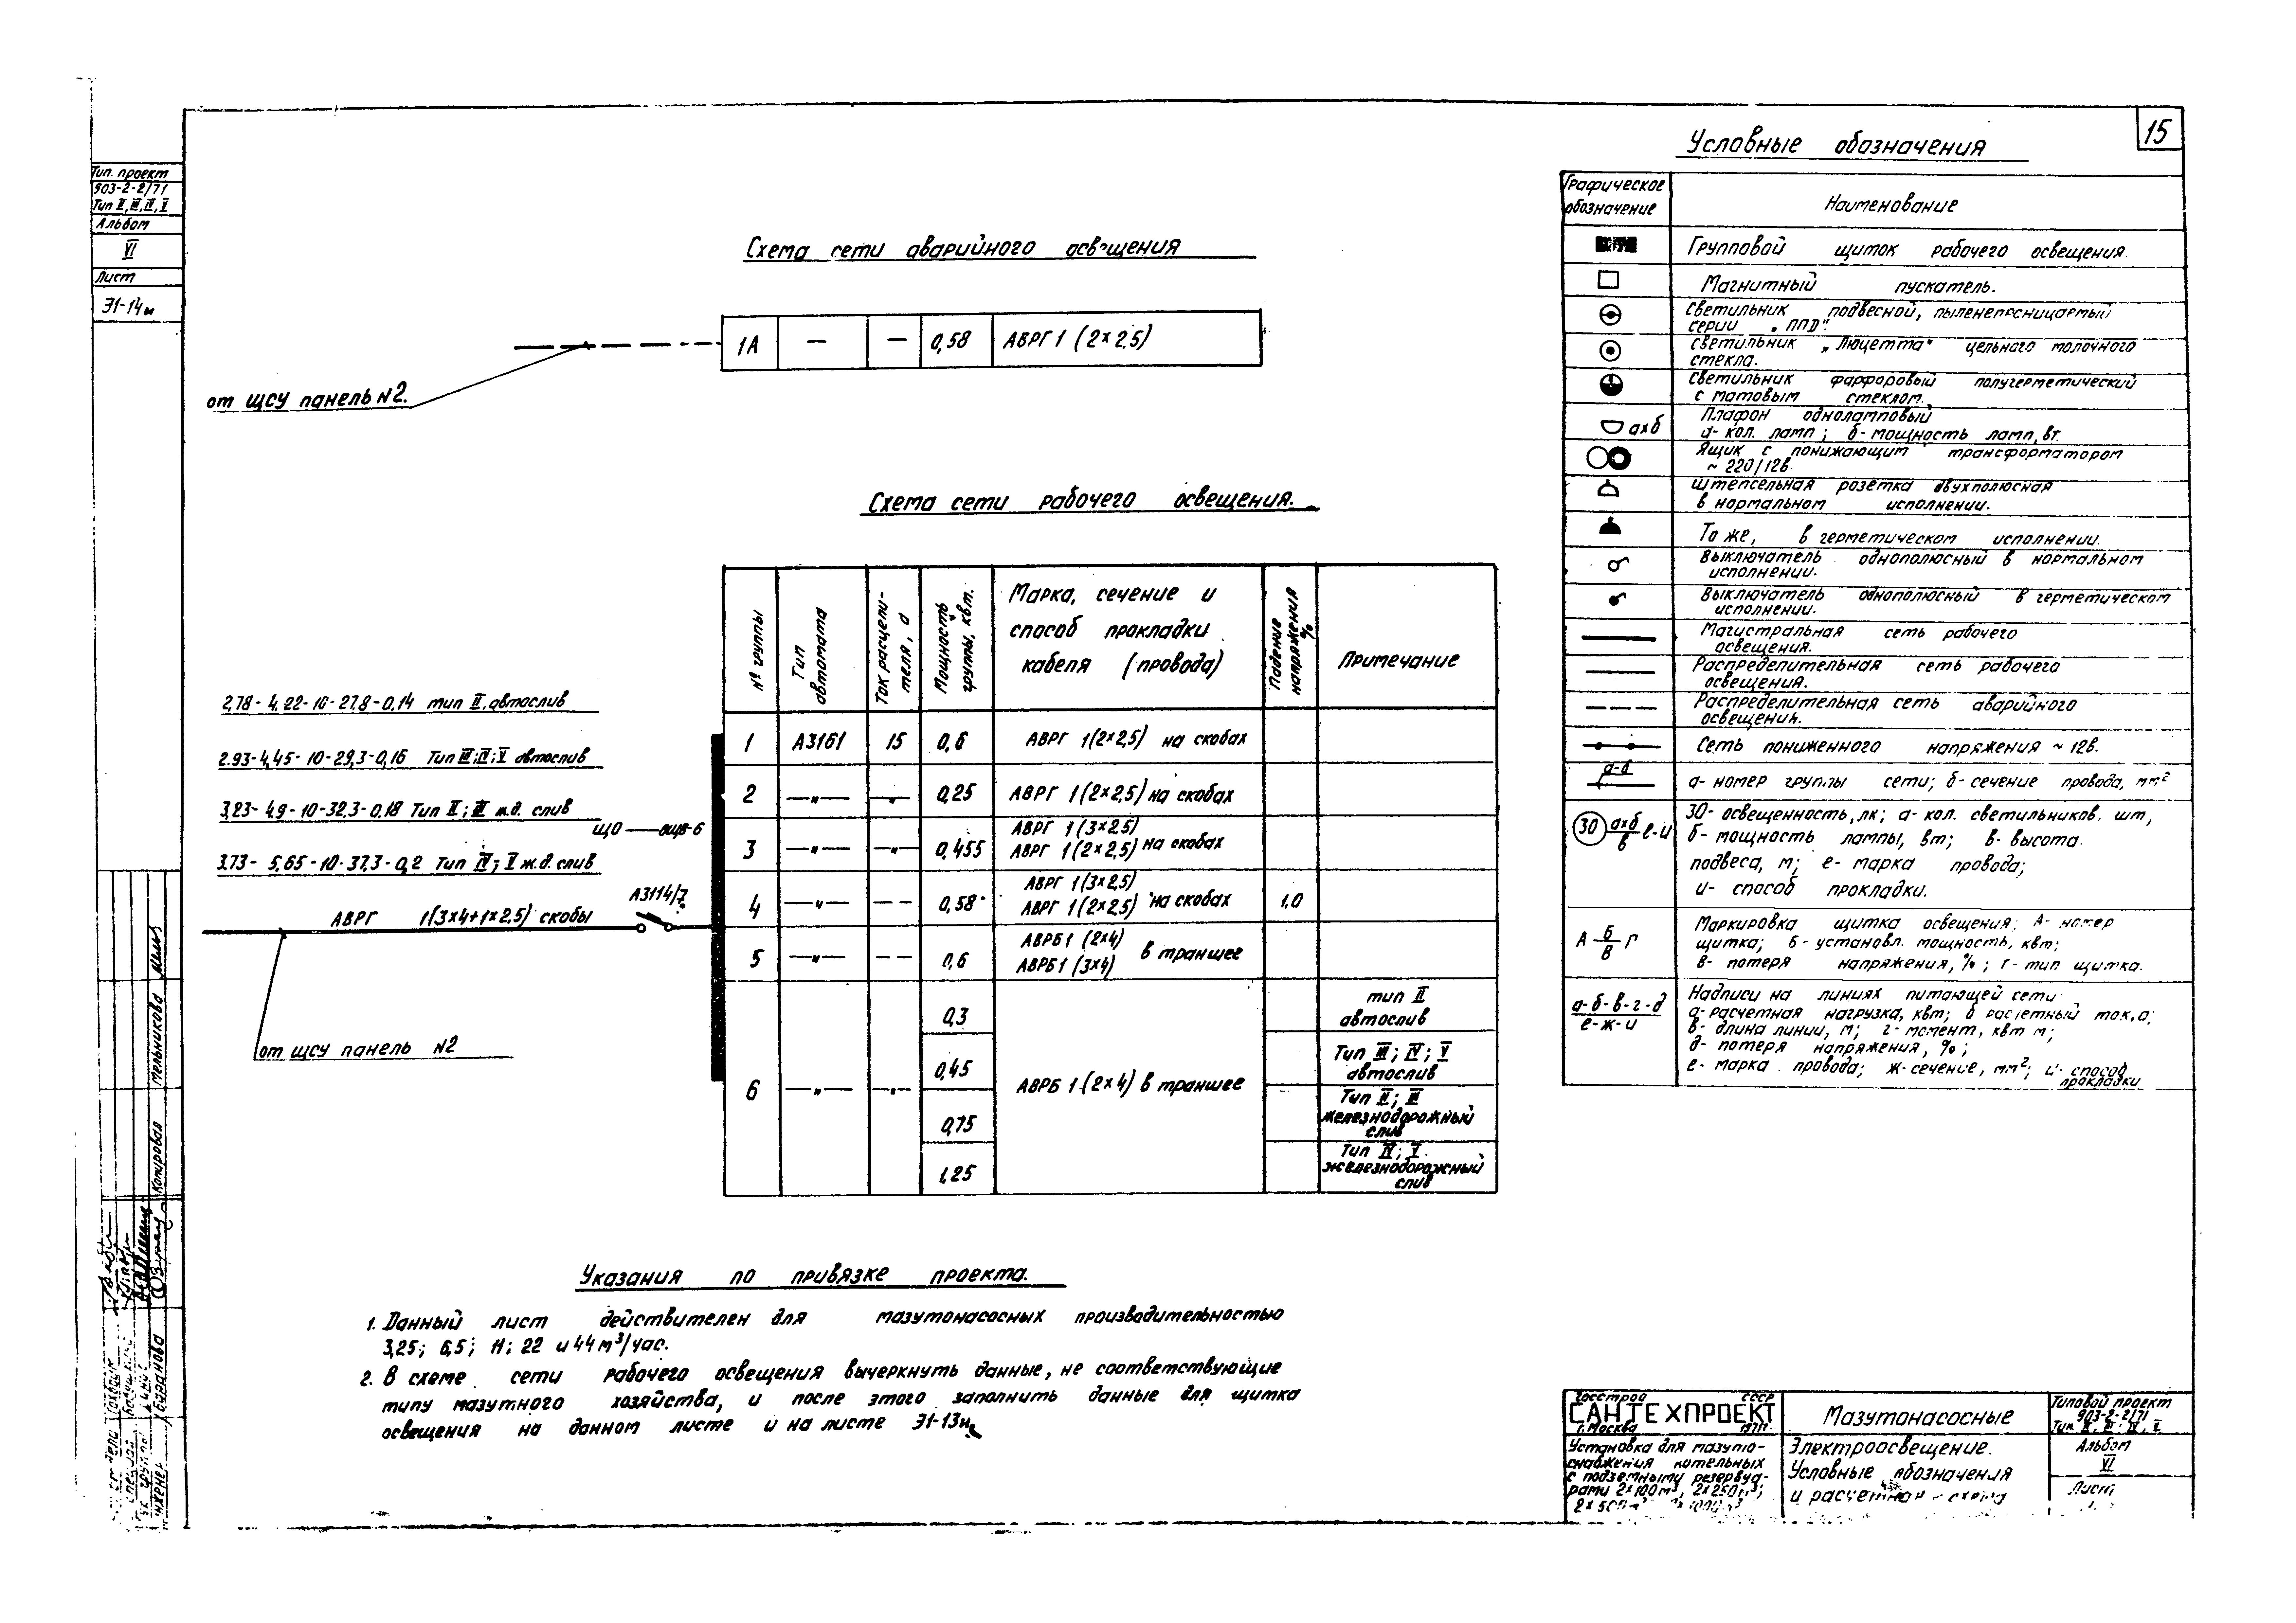 15
Тип. проект
903-2-2/71
Тип II, III, IV, V
Альбом
VI
Лист
Э1-14м
Схема сети аварийного освещения
1А — — 0,58 АВРГ 1 (2×2,5)
от ЩСУ панель №2.
Схема сети рабочего освещения.
№ группы
Тип автомата
Ток расцепителя, а
Мощность группы, квт.
Марка, сечение и
способ прокладки
кабеля (провода)
Падение напряжения %
Примечание
1 А3161 15 0,6 АВРГ 1(2×2,5) на скобах
2 —"— —"— 0,25 АВРГ 1(2×2,5) на скобах
3 —"— —"— 0,455 АВРГ 1(3×2,5)
АВРГ 1(2×2,5) на скобах
4 —"— — — 0,58 АВРГ 1(3×2,5)
АВРГ 1(2×2,5) на скобах 1,0
5 —"— — — 0,6 АВРБ1 (2×4)
АВРБ1 (3×4) в траншее
6 —"— —"— АВРБ 1 (2×4) в траншее
0,3 тип II
автослив
0,45 Тип III; IV; V
автослив
0,75 Тип II; III
железнодорожный
слив
1,25 Тип IV; V.
железнодорожный
слив
2,78-4,22-10-27,8-0,14 тип II, автослив
2.93-4,45-10-29,3-0,16 Тип III; IV; V автослив
3,23-4,9-10-32,3-0,18 Тип II; III ж.д. слив
3.73-5,65-10-37,3-0,2 Тип IV; V ж.д. слив
ЩО
А3114/7
АВРГ 1(3×4+1×2,5) скобы
от щсу панель №2
Указания по привязке проекта.
1. Данный лист действителен для мазутонасосных производительностью
3,25; 6,5; 11; 22 и 44 м³/час.
2. В схеме сети рабочего освещения вычеркнуть данные, не соответствующие
типу мазутного хозяйства, и после этого заполнить данные для щитка
освещения на данном листе и на листе Э1-13м
Условные обозначения
Графическое
обозначение
Наименование
Групповой щиток рабочего освещения.
Магнитный пускатель.
Светильник подвесной, пыленепроницаемый
серии „ППД".
Светильник „Люцетта" цельного молочного
стекла.
Светильник фарфоровый полугерметический
с матовым стеклом.
а×б Плафон одноламповый
а- кол. ламп; б- мощность ламп, вт.
Ящик с понижающим трансформатором
~ 220/12в.
Штепсельная розетка двухполюсная
в нормальном исполнении.
То же, в герметическом исполнении.
Выключатель однополюсный в нормальном
исполнении.
Выключатель однополюсный в герметическом
исполнении.
Магистральная сеть рабочего
освещения.
Распределительная сеть рабочего
освещения.
Распределительная сеть аварийного
освещения.
Сеть пониженного напряжения ~ 12в.
а-б а- номер группы сети; б- сечение провода, мм²
30 а×б/в е-и 30- освещенность, лк; а- кол. светильников, шт,
б- мощность лампы, вт; в- высота
подвеса, м; е- марка провода;
и- способ прокладки.
А Б/В Г Маркировка щитка освещения: А- номер
щитка; Б- установл. мощность, квт;
В- потеря напряжения, %; г- тип щитка.
а-б-в-г-д
е-ж-и
Надписи на линиях питающей сети
а- расчетная нагрузка, квт; б расчетный ток, а;
в- длина линии, м; г- момент, квт м;
д- потеря напряжения, %;
е- марка провода; ж- сечение, мм²; и- способ
прокладки
Мельникова
Копировал
Баранова
Госстрой СССР
САНТЕХПРОЕКТ
г. Москва 1971г.
Мазутонасосные
Типовой проект
903-2-2/71
Тип II, III, IV, V
Установка для мазуто-
снабжения котельных
с подземными резервуа-
рами 2×100м³, 2×250м³;
Электроосвещение.
Условные обозначения
и расчетная схема
Альбом
VI
Лист